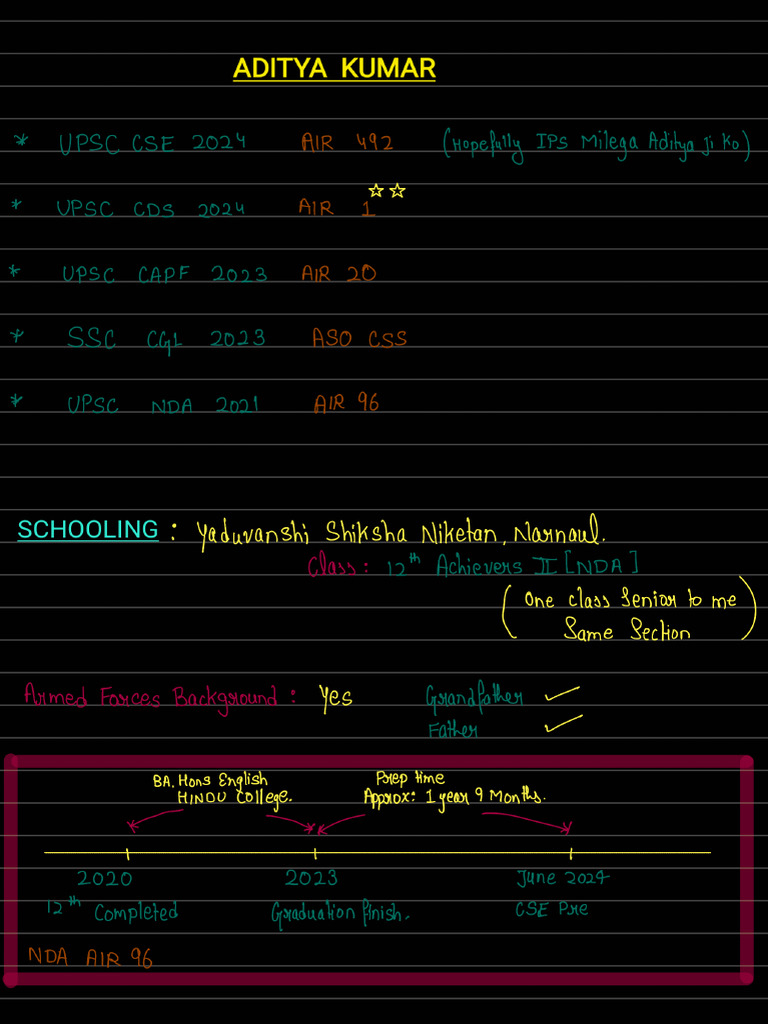 ADITYA KUMAR
* UPSC CSE 2024 AIR 492 (Hopefully IPS Milega Aditya ji ko)
* UPSC CDS 2024 AIR 1 ☆☆
* UPSC CAPF 2023 AIR 20
* SSC CGL 2023 ASO CSS
* UPSC NDA 2021 AIR 96
SCHOOLING : Yaduvanshi Shiksha Niketan, Narnaul.
Class: 12th Achievers II [NDA]
(One class Senior to me
Same Section)
Armed Forces Background : Yes Grandfather ✓
Father ✓
BA. Hons English Prep time
HINDU College. Approx: 1 year 9 Months.
2020 2023 June 2024
12th Completed Graduation finish. CSE Pre
NDA AIR 96